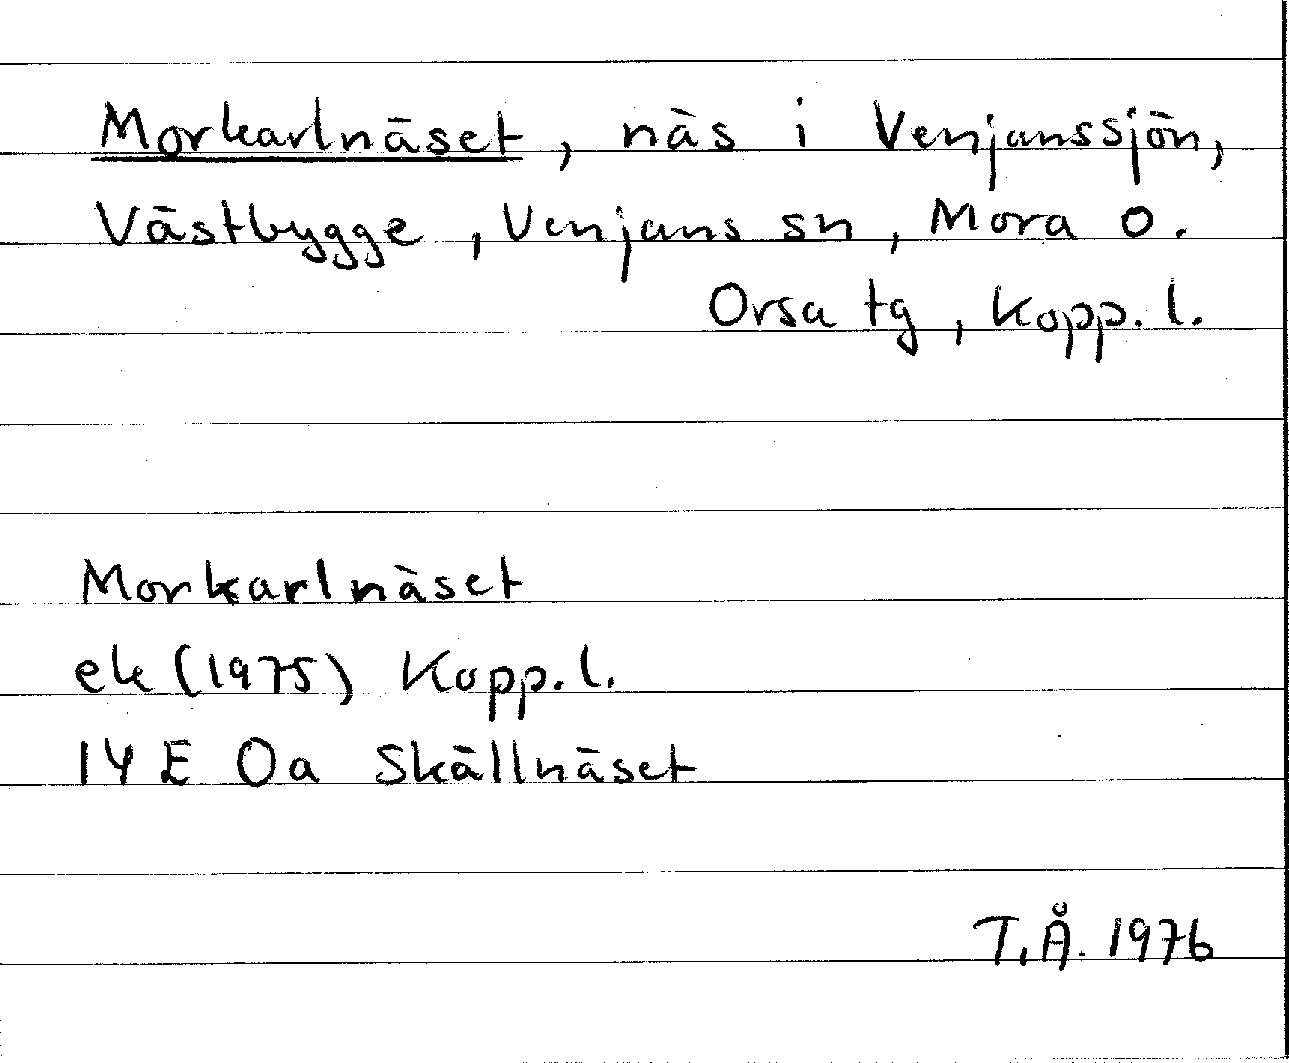 Morkarlnäset, näs i Venjanssjön,
Västbygge, Venjans sn, Mora o.
Orsa tg, Kopp. l.
Morkarlnäset
ek (1975) Kopp. l.
14 E 0a Skällnäset
T.Å. 1976